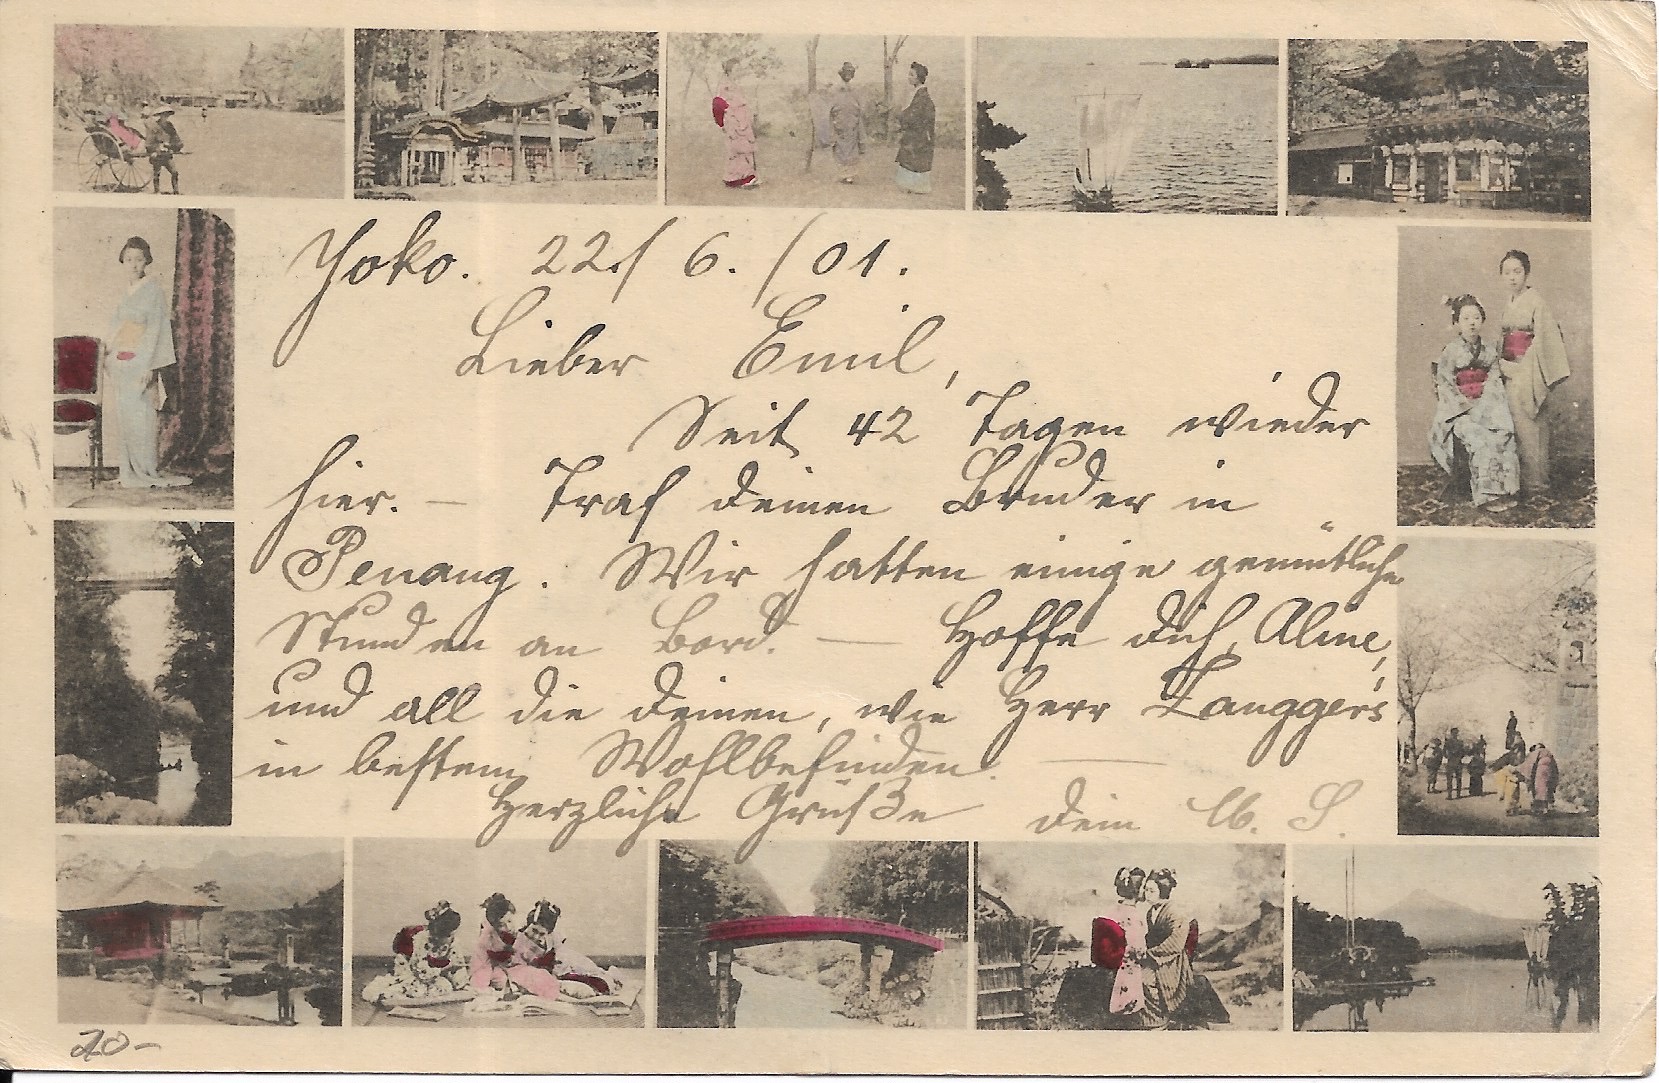 Yoko. 22./ 6. /01.
Lieber Emil,
Seit 42 Tagen wieder
hier. — Traf deinen Bruder in
Penang. Wir hatten einige gemütliche
Stunden an Bord. — Hoffe dich, Aline,
und all die deinen, wie Herr Langger's
in bestem Wohlbefinden. —
Herzliche Grüße dein S.
20-